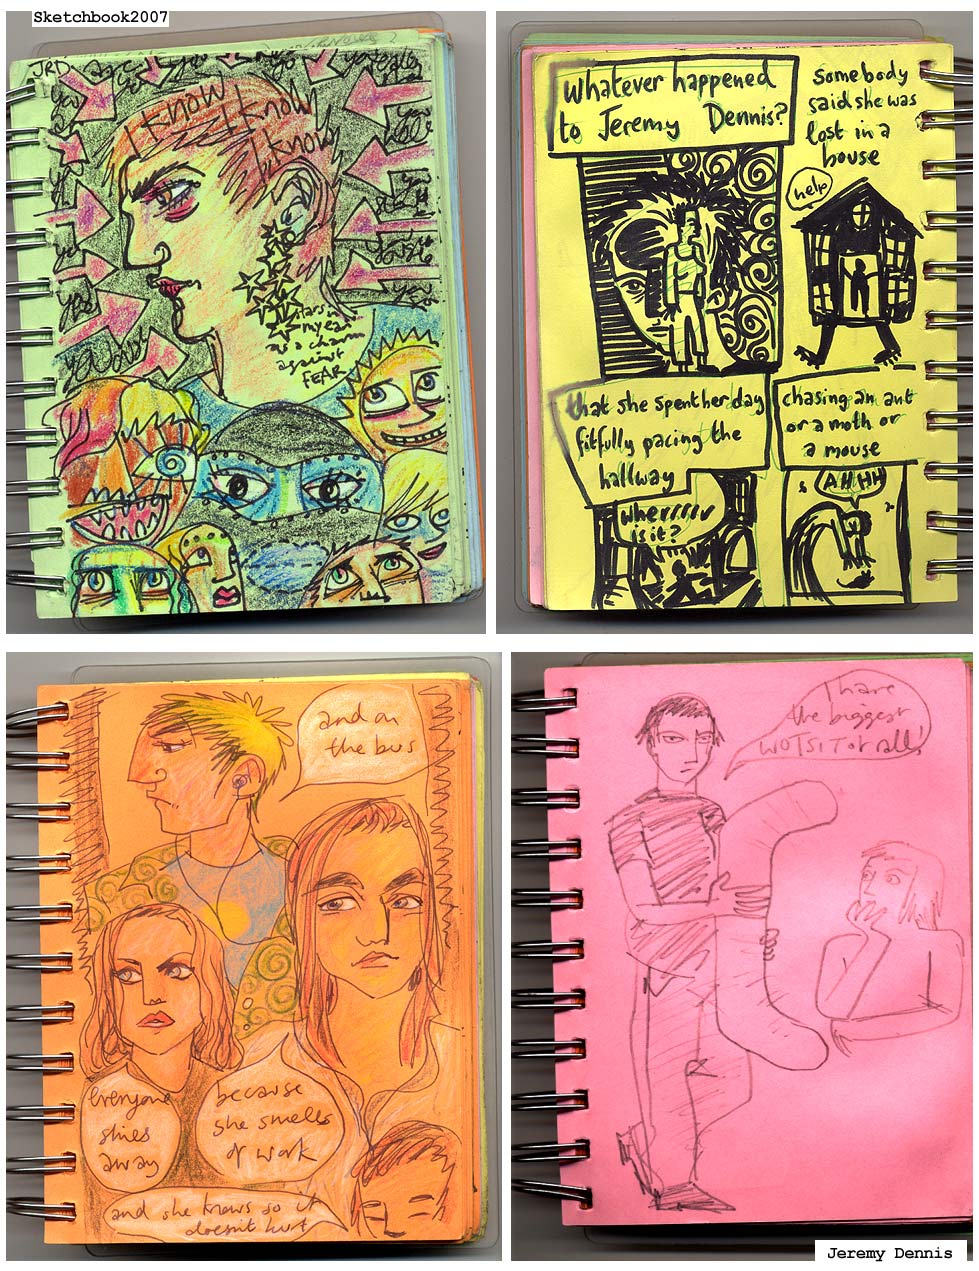 Sketchbook2007
JRD
I know I know
I know
stars in
my ear
as a charm
against
FEAR
Whatever happened
to Jeremy Dennis?
Somebody
said she was
lost in a
house
help
that she spent her day
fitfully pacing the
hallway
wherrrrr
is it?
chasing an ant
or a moth or
a mouse
AHHH
and on
the bus
everyone
shies
away
because
she smells
of work
and she knows so it
doesn't hurt
I have
the biggest
WOTSIT of all!
Jeremy Dennis